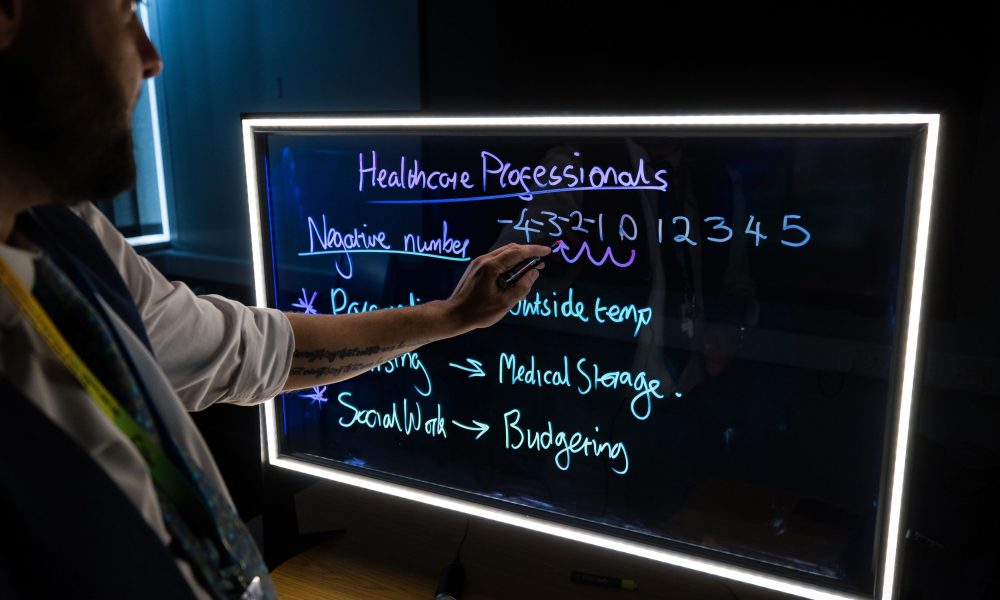 Healthcare Professionals
Negative number -4 -3 -2 -1 0 1 2 3 4 5
* outside temp
→ Medical Storage.
* Social Work → Budgeting